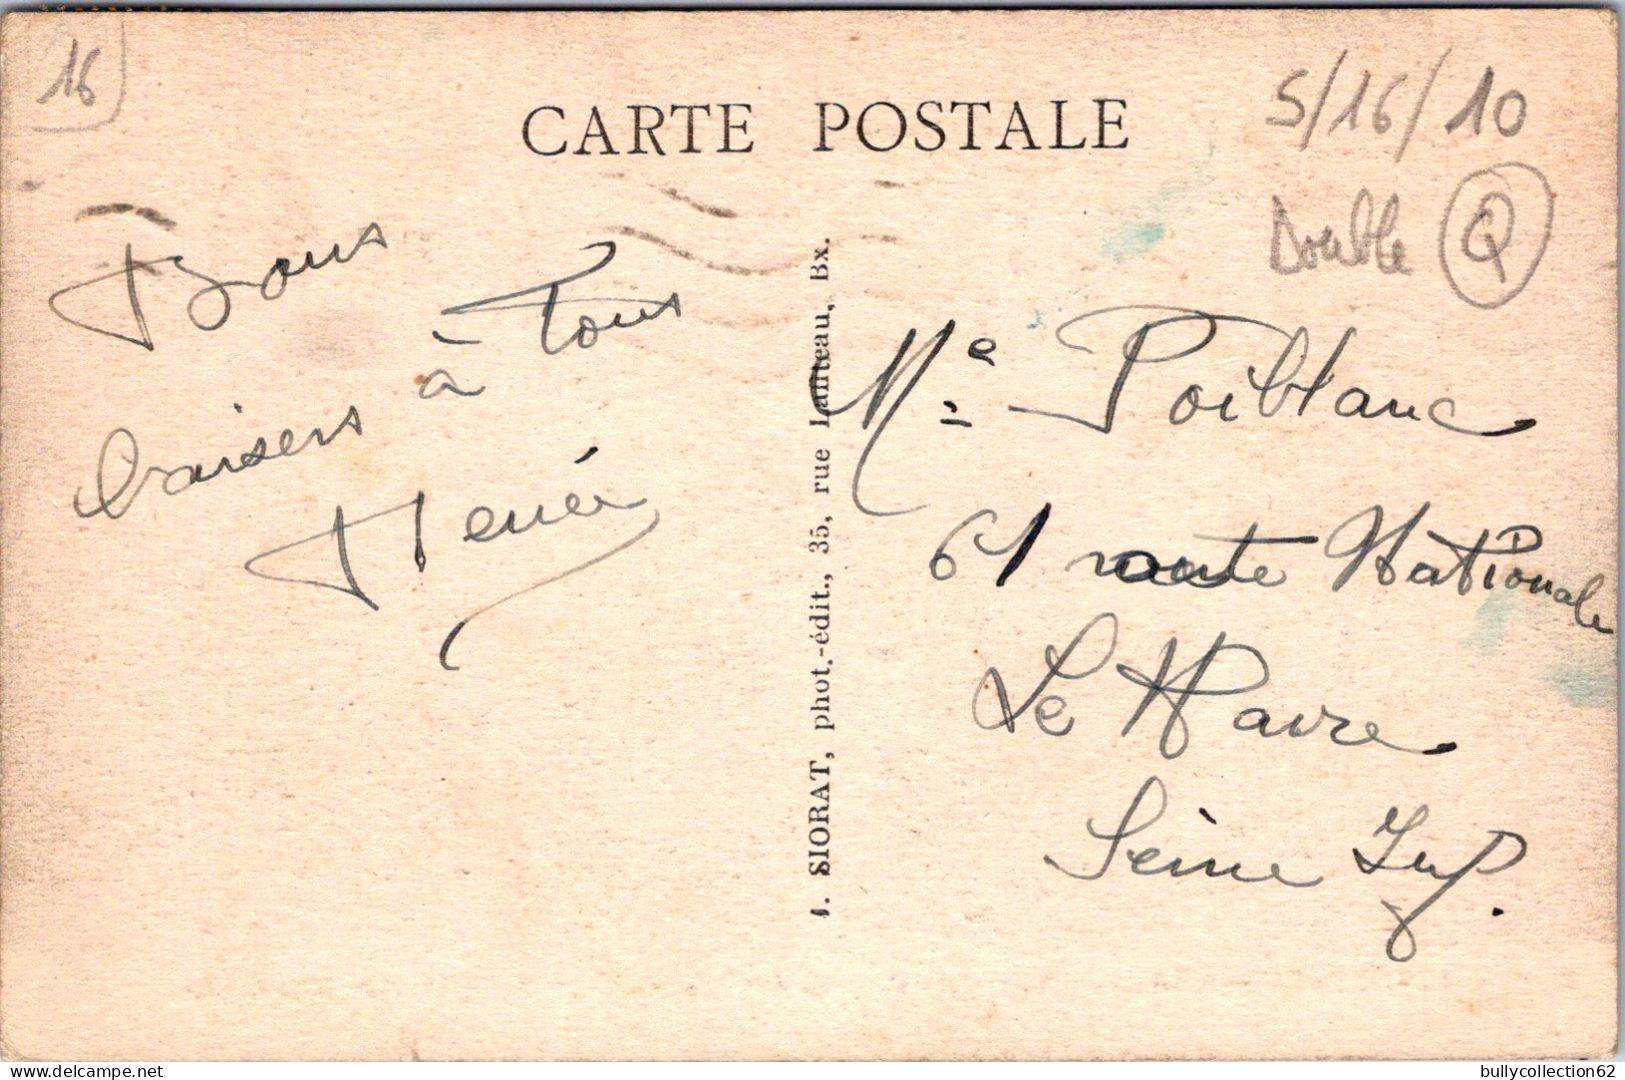 16
CARTE POSTALE
5/16/10
Double Q
Bons
baisers à Tous
SIORAT, phot.-édit., 35, rue Lafiteau, Bx.
Me Poiblanc
61 route Nationale
Le Havre
Seine Inf.
bullycollection62